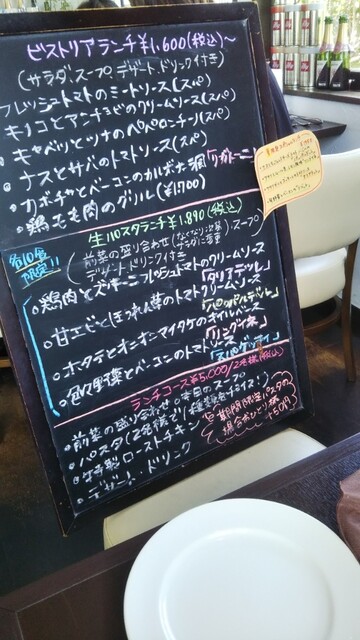 ビストリアランチ ¥1,600(税込)~
(サラダ、スープ、デザート、ドリンク付き)
フレッシュトマトのミートソース(スパ)
・キノコとアンチョビのクリームソース(スパ)
・キャベツとツナのペペロンチーノ(スパ)
・ナスとサバのトマトソース(スパ)
・カボチャとベーコンのカルボナーラ「リガトーニ」
・鶏もも肉のグリル(¥1,700)
生パスタランチ ¥1,890(税込)
各10食限定!!
(前菜の盛り合わせ スープ
デザート ドリンク付き)
・鶏肉とズッキーニフレッシュトマトのクリームソース
「タリアテッレ」
・甘エビとほうれん草のトマトクリームソース
「パッパルデッレ」
・ホタテとオニオン マイタケのオイルベース
「リングイネ」
・色々野菜とベーコンのトマトソース
「スパゲッティ」
ランチコース ¥5,000/2名様(税込)
・前菜の盛り合わせ ・本日のスープ
・パスタ(2名様で1種類をチョイス!)
・特製ローストチキン
・デザート ドリンク
期間限定パスタの
場合おひとり様
+150円